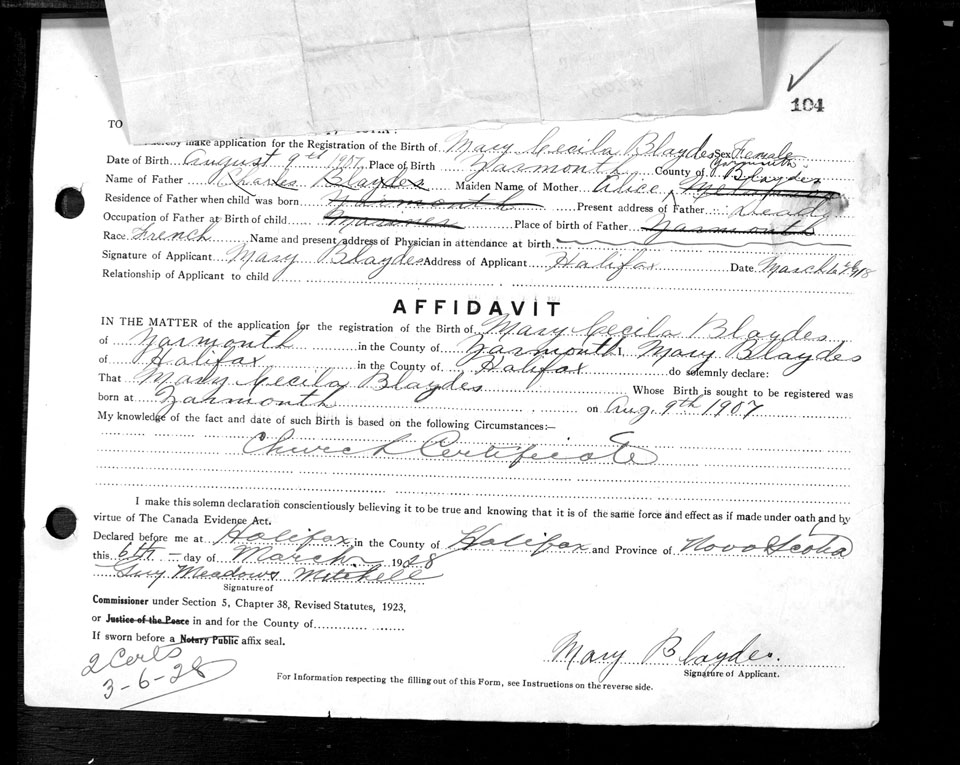 104
TO
hereby make application for the Registration of the Birth of Mary Cecila Blaydes Sex Female
Date of Birth August 9th 1907 Place of Birth Yarmouth County of Yarmouth
Name of Father Charles Blaydes Maiden Name of Mother Alice Blaydes
Residence of Father when child was born Yarmouth Present address of Father
Occupation of Father at Birth of child Mariner Place of birth of Father Yarmouth
Race French Name and present address of Physician in attendance at birth
Signature of Applicant Mary Blaydes Address of Applicant Halifax Date March
Relationship of Applicant to child
AFFIDAVIT
IN THE MATTER of the application for the registration of the Birth of Mary Cecila Blaydes
of Yarmouth in the County of Yarmouth I, Mary Blaydes
of Halifax in the County of Halifax do solemnly declare:
That Mary Cecila Blaydes Whose Birth is sought to be registered was
born at Yarmouth on Aug. 9th 1907
My knowledge of the fact and date of such Birth is based on the following Circumstances:—
Church Certificate
I make this solemn declaration conscientiously believing it to be true and knowing that it is of the same force and effect as if made under oath and by
virtue of The Canada Evidence Act.
Declared before me at Halifax in the County of Halifax and Province of Nova Scotia
this 6th day of March 1928
Guy Meadows Mitchell
Signature of
Commissioner under Section 5, Chapter 38, Revised Statutes, 1923,
or Justice of the Peace in and for the County of
If sworn before a Notary Public affix seal.
2 Certs
3-6-28
Mary Blaydes.
Signature of Applicant.
For Information respecting the filling out of this Form, see Instructions on the reverse side.